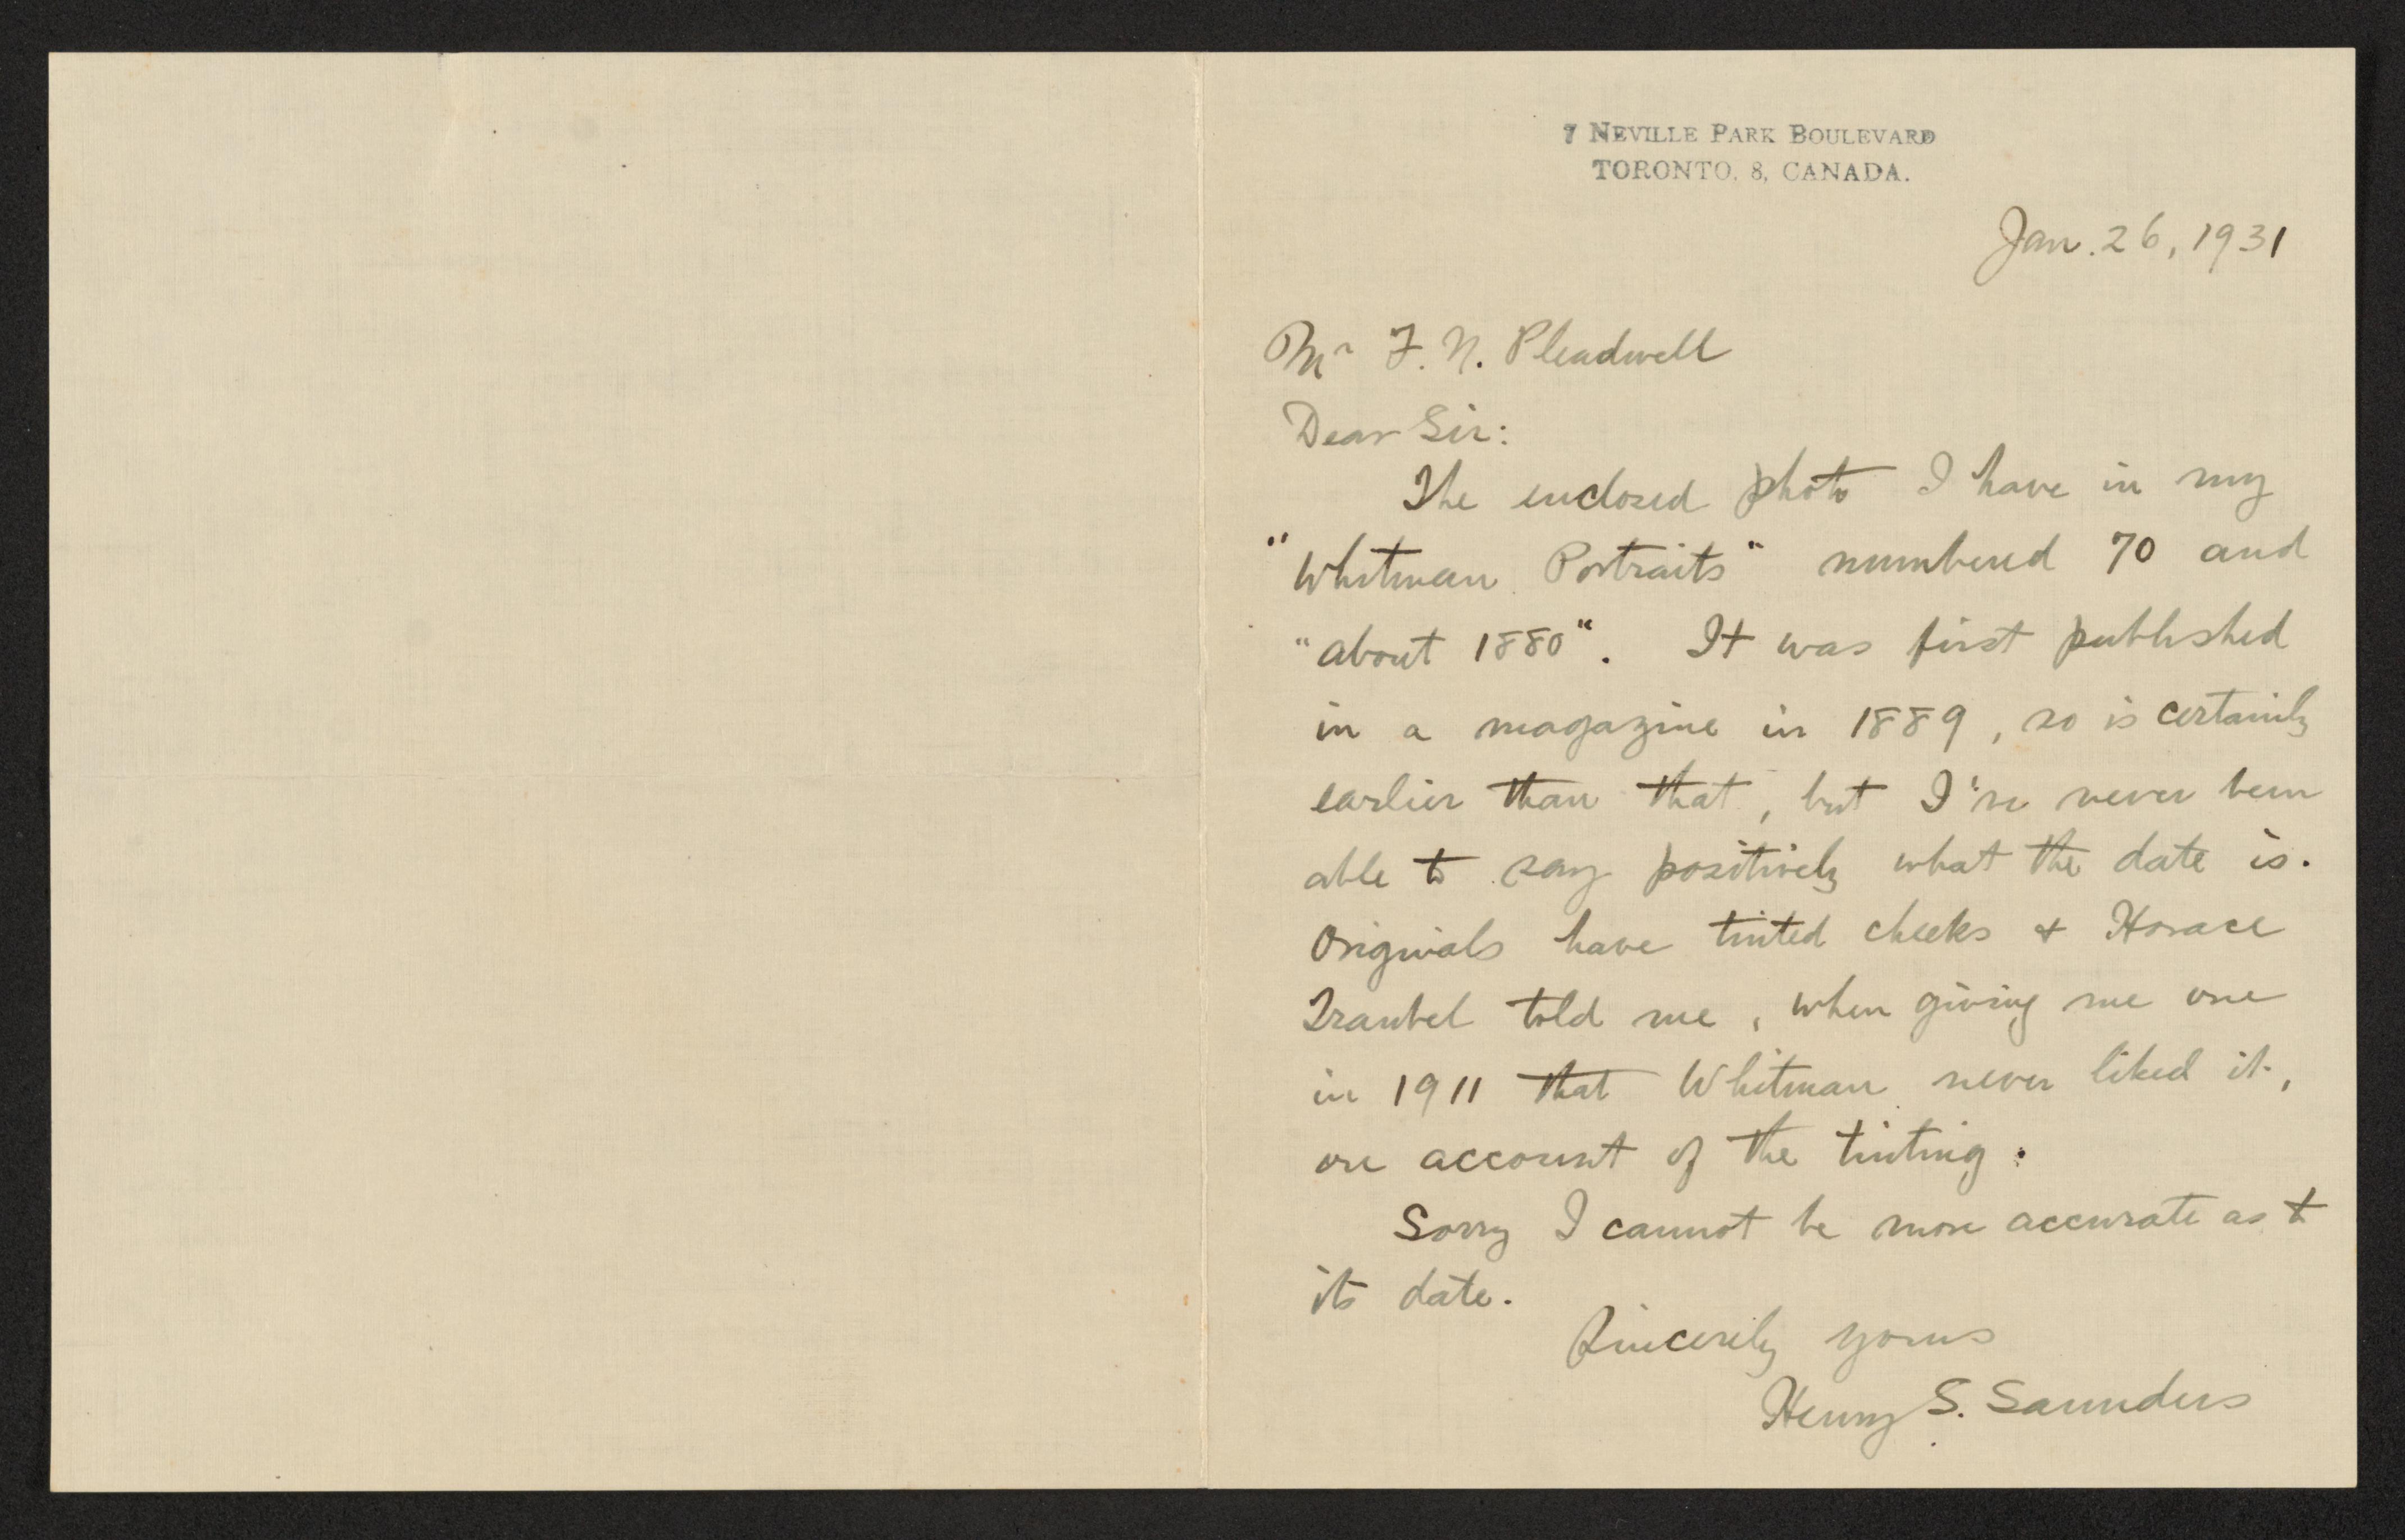 7 NEVILLE PARK BOULEVARD
TORONTO, 8, CANADA.
Jan. 26, 1931
Mr F. N. Pleadwell
Dear Sir:
The enclosed photo I have in my
"Whitman Portraits" numbered 70 and
"about 1880". It was first published
in a magazine in 1889, so is certainly
earlier than that, but I've never been
able to say positively what the date is.
Originals have tinted cheeks & Horace
Traubel told me, when giving me one
in 1911 that Whitman never liked it,
on account of the tinting.
Sorry I cannot be more accurate as to
its date.
Sincerely yours
Henry S. Saunders